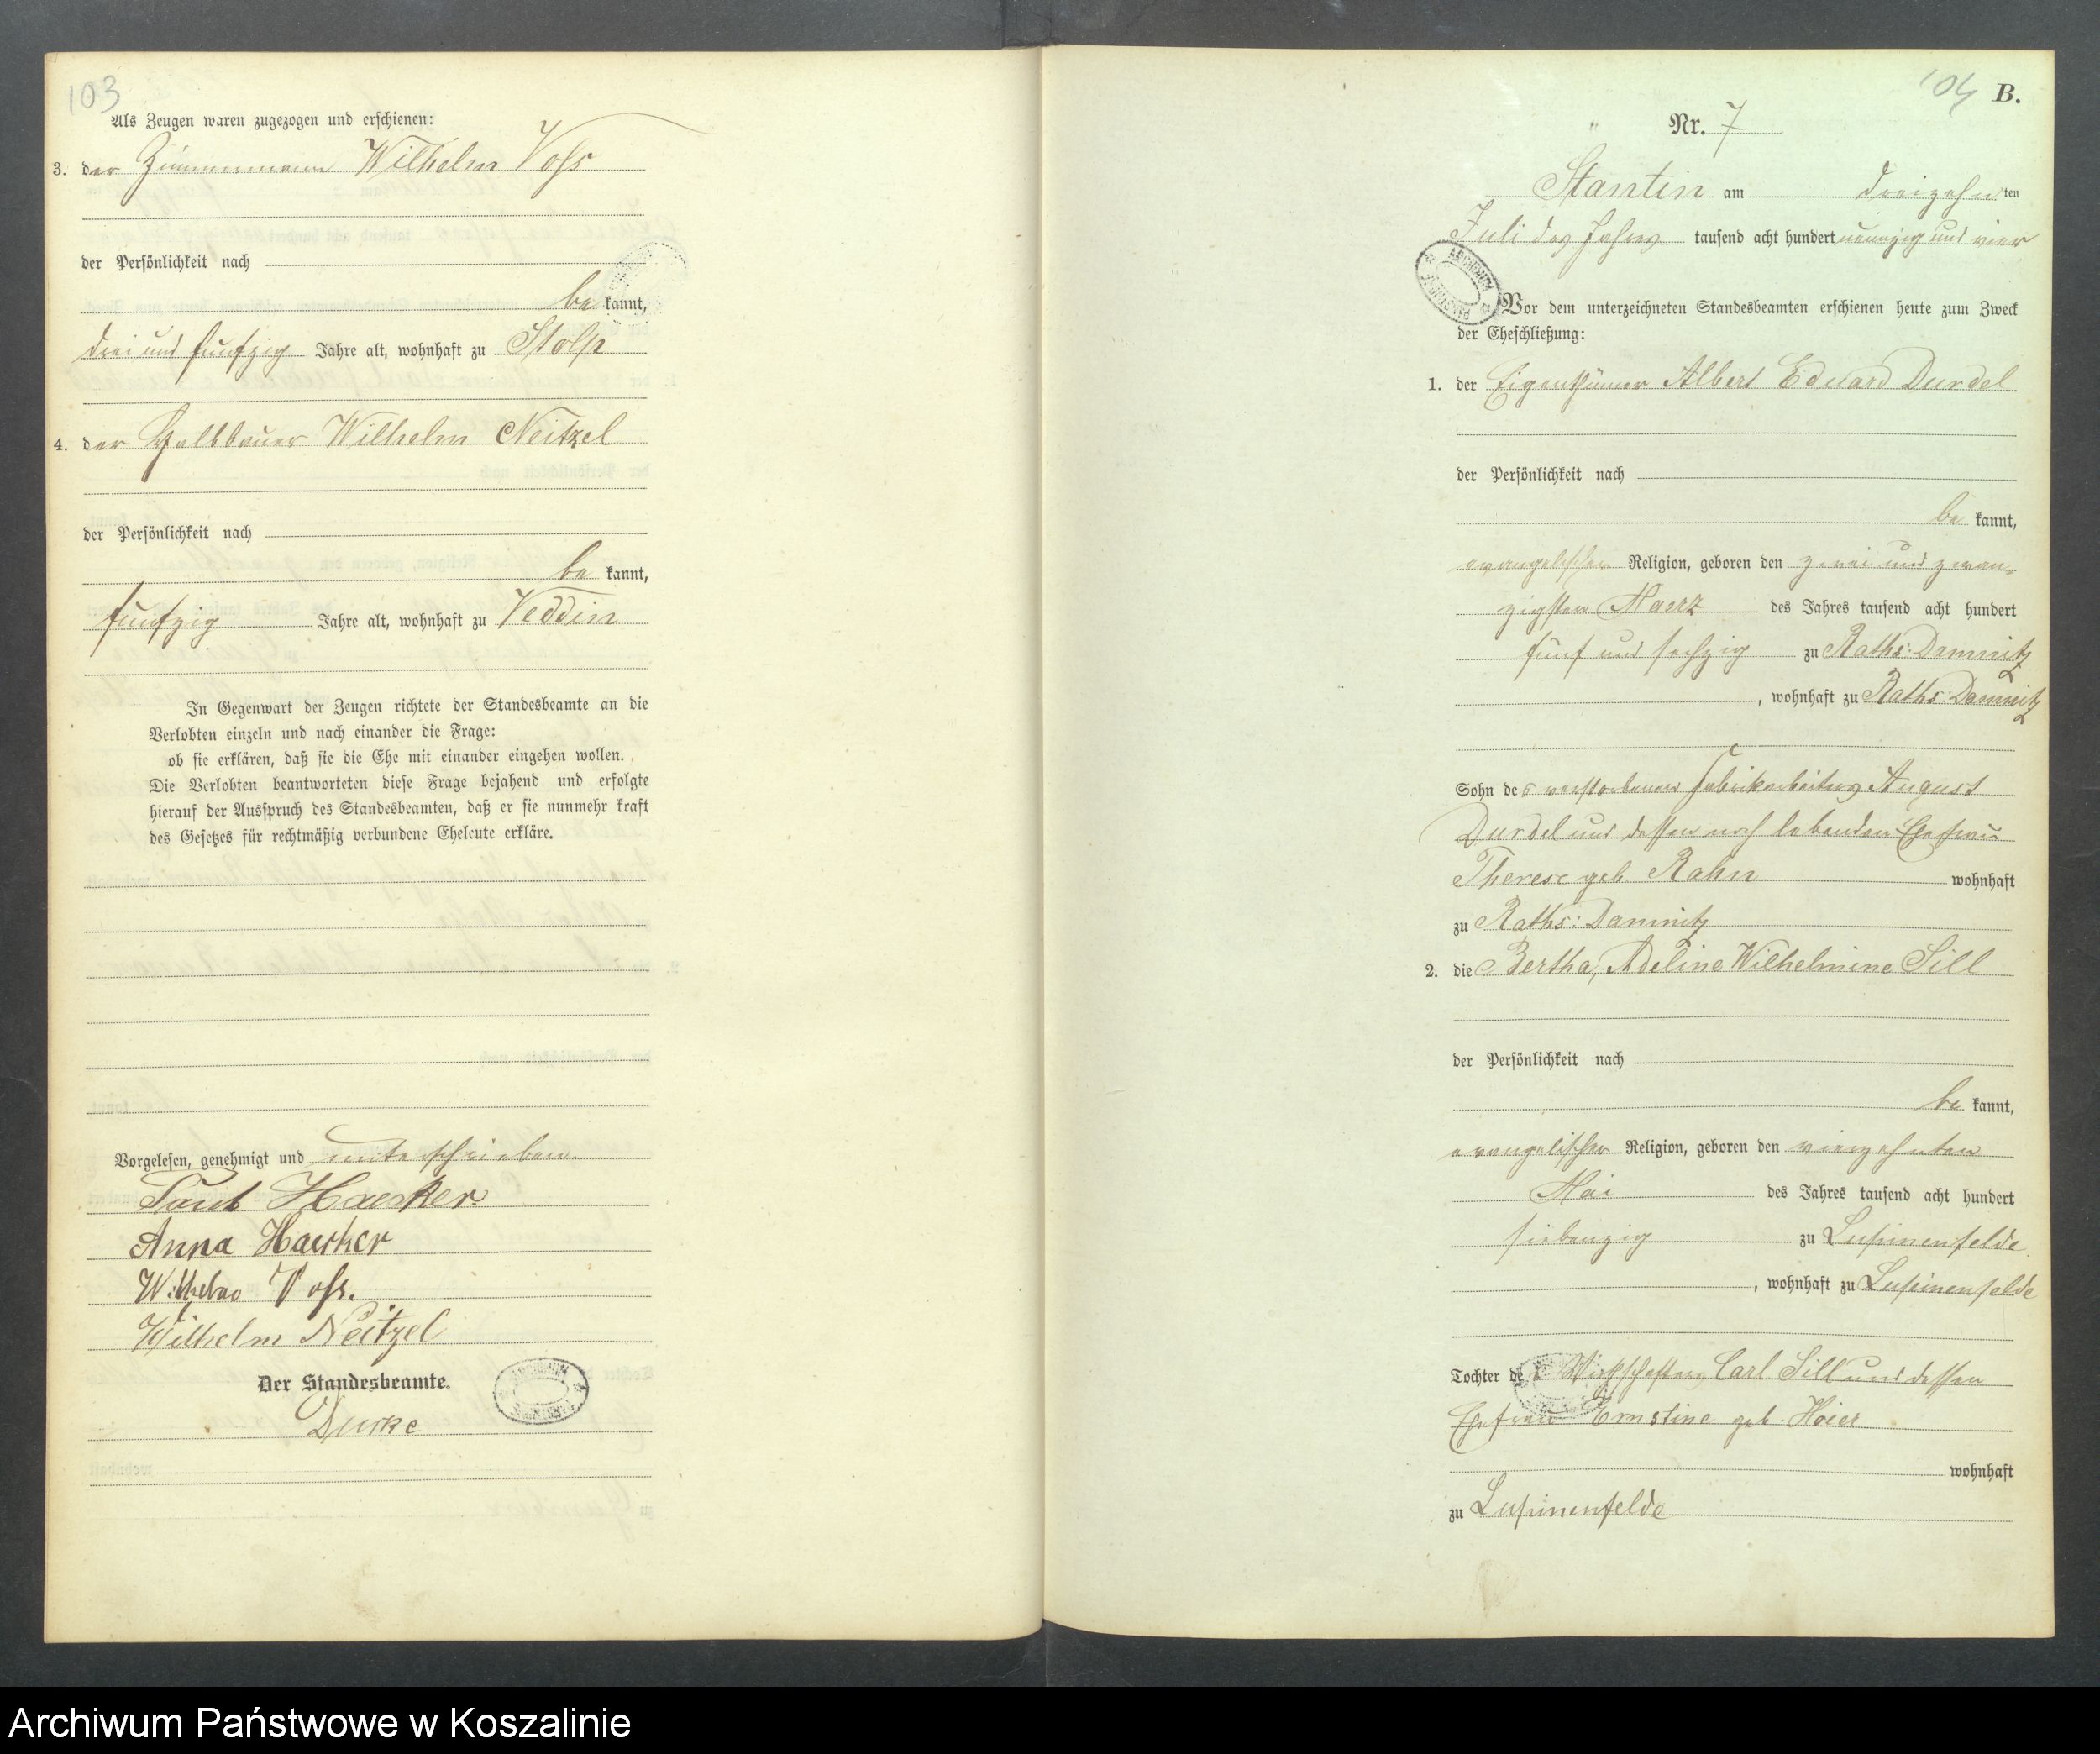 103
Als Zeugen waren zugezogen und erschienen:
3. der Zimmermann Wilhelm Voss
der Persönlichkeit nach
be kannt,
drei und fünfzig Jahre alt, wohnhaft zu Stolp
4. der Halbbauer Wilhelm Neitzel
der Persönlichkeit nach
be kannt,
fünfzig Jahre alt, wohnhaft zu Veddin
In Gegenwart der Zeugen richtete der Standesbeamte an die
Verlobten einzeln und nach einander die Frage:
ob sie erklären, daß sie die Ehe mit einander eingehen wollen.
Die Verlobten beantworteten diese Frage bejahend und erfolgte
hierauf der Ausspruch des Standesbeamten, daß er sie nunmehr kraft
des Gesetzes für rechtmäßig verbundene Eheleute erkläre.
Vorgelesen, genehmigt und unterschrieben.
Paul Haecker
Anna Haecker
Wilhelm Voss.
Wilhelm Neitzel
Der Standesbeamte.
104 B.
Nr. 7
Stantin am dreizehn ten
Juli des Jahres tausend acht hundert neunzig und vier
Vor dem unterzeichneten Standesbeamten erschienen heute zum Zweck
der Eheschließung:
1. der Eigenthümer Albert Eduard Durdel
der Persönlichkeit nach
be kannt,
evangelischer Religion, geboren den zwei und zwan-
zigsten Maerz des Jahres tausend acht hundert
fünf und sechzig zu Raths-Damnitz
, wohnhaft zu Raths-Damnitz
Sohn des verstorbenen Fabrikarbeiters August
Durdel und dessen noch lebenden Ehefrau
Therese geb. Rahn wohnhaft
zu Raths: Damnitz
2. die Bertha, Adeline Wilhelmine Sill
der Persönlichkeit nach
be kannt,
evangelischer Religion, geboren den vierzehnten
Mai des Jahres tausend acht hundert
siebenzig zu Lupinenfelde
, wohnhaft zu Lupinenfelde
Tochter des Wirthschafters Carl Sill und dessen
Ehefrau Ernstine geb. Hoier
wohnhaft
zu Lupinenfelde
Archiwum Państwowe w Koszalinie